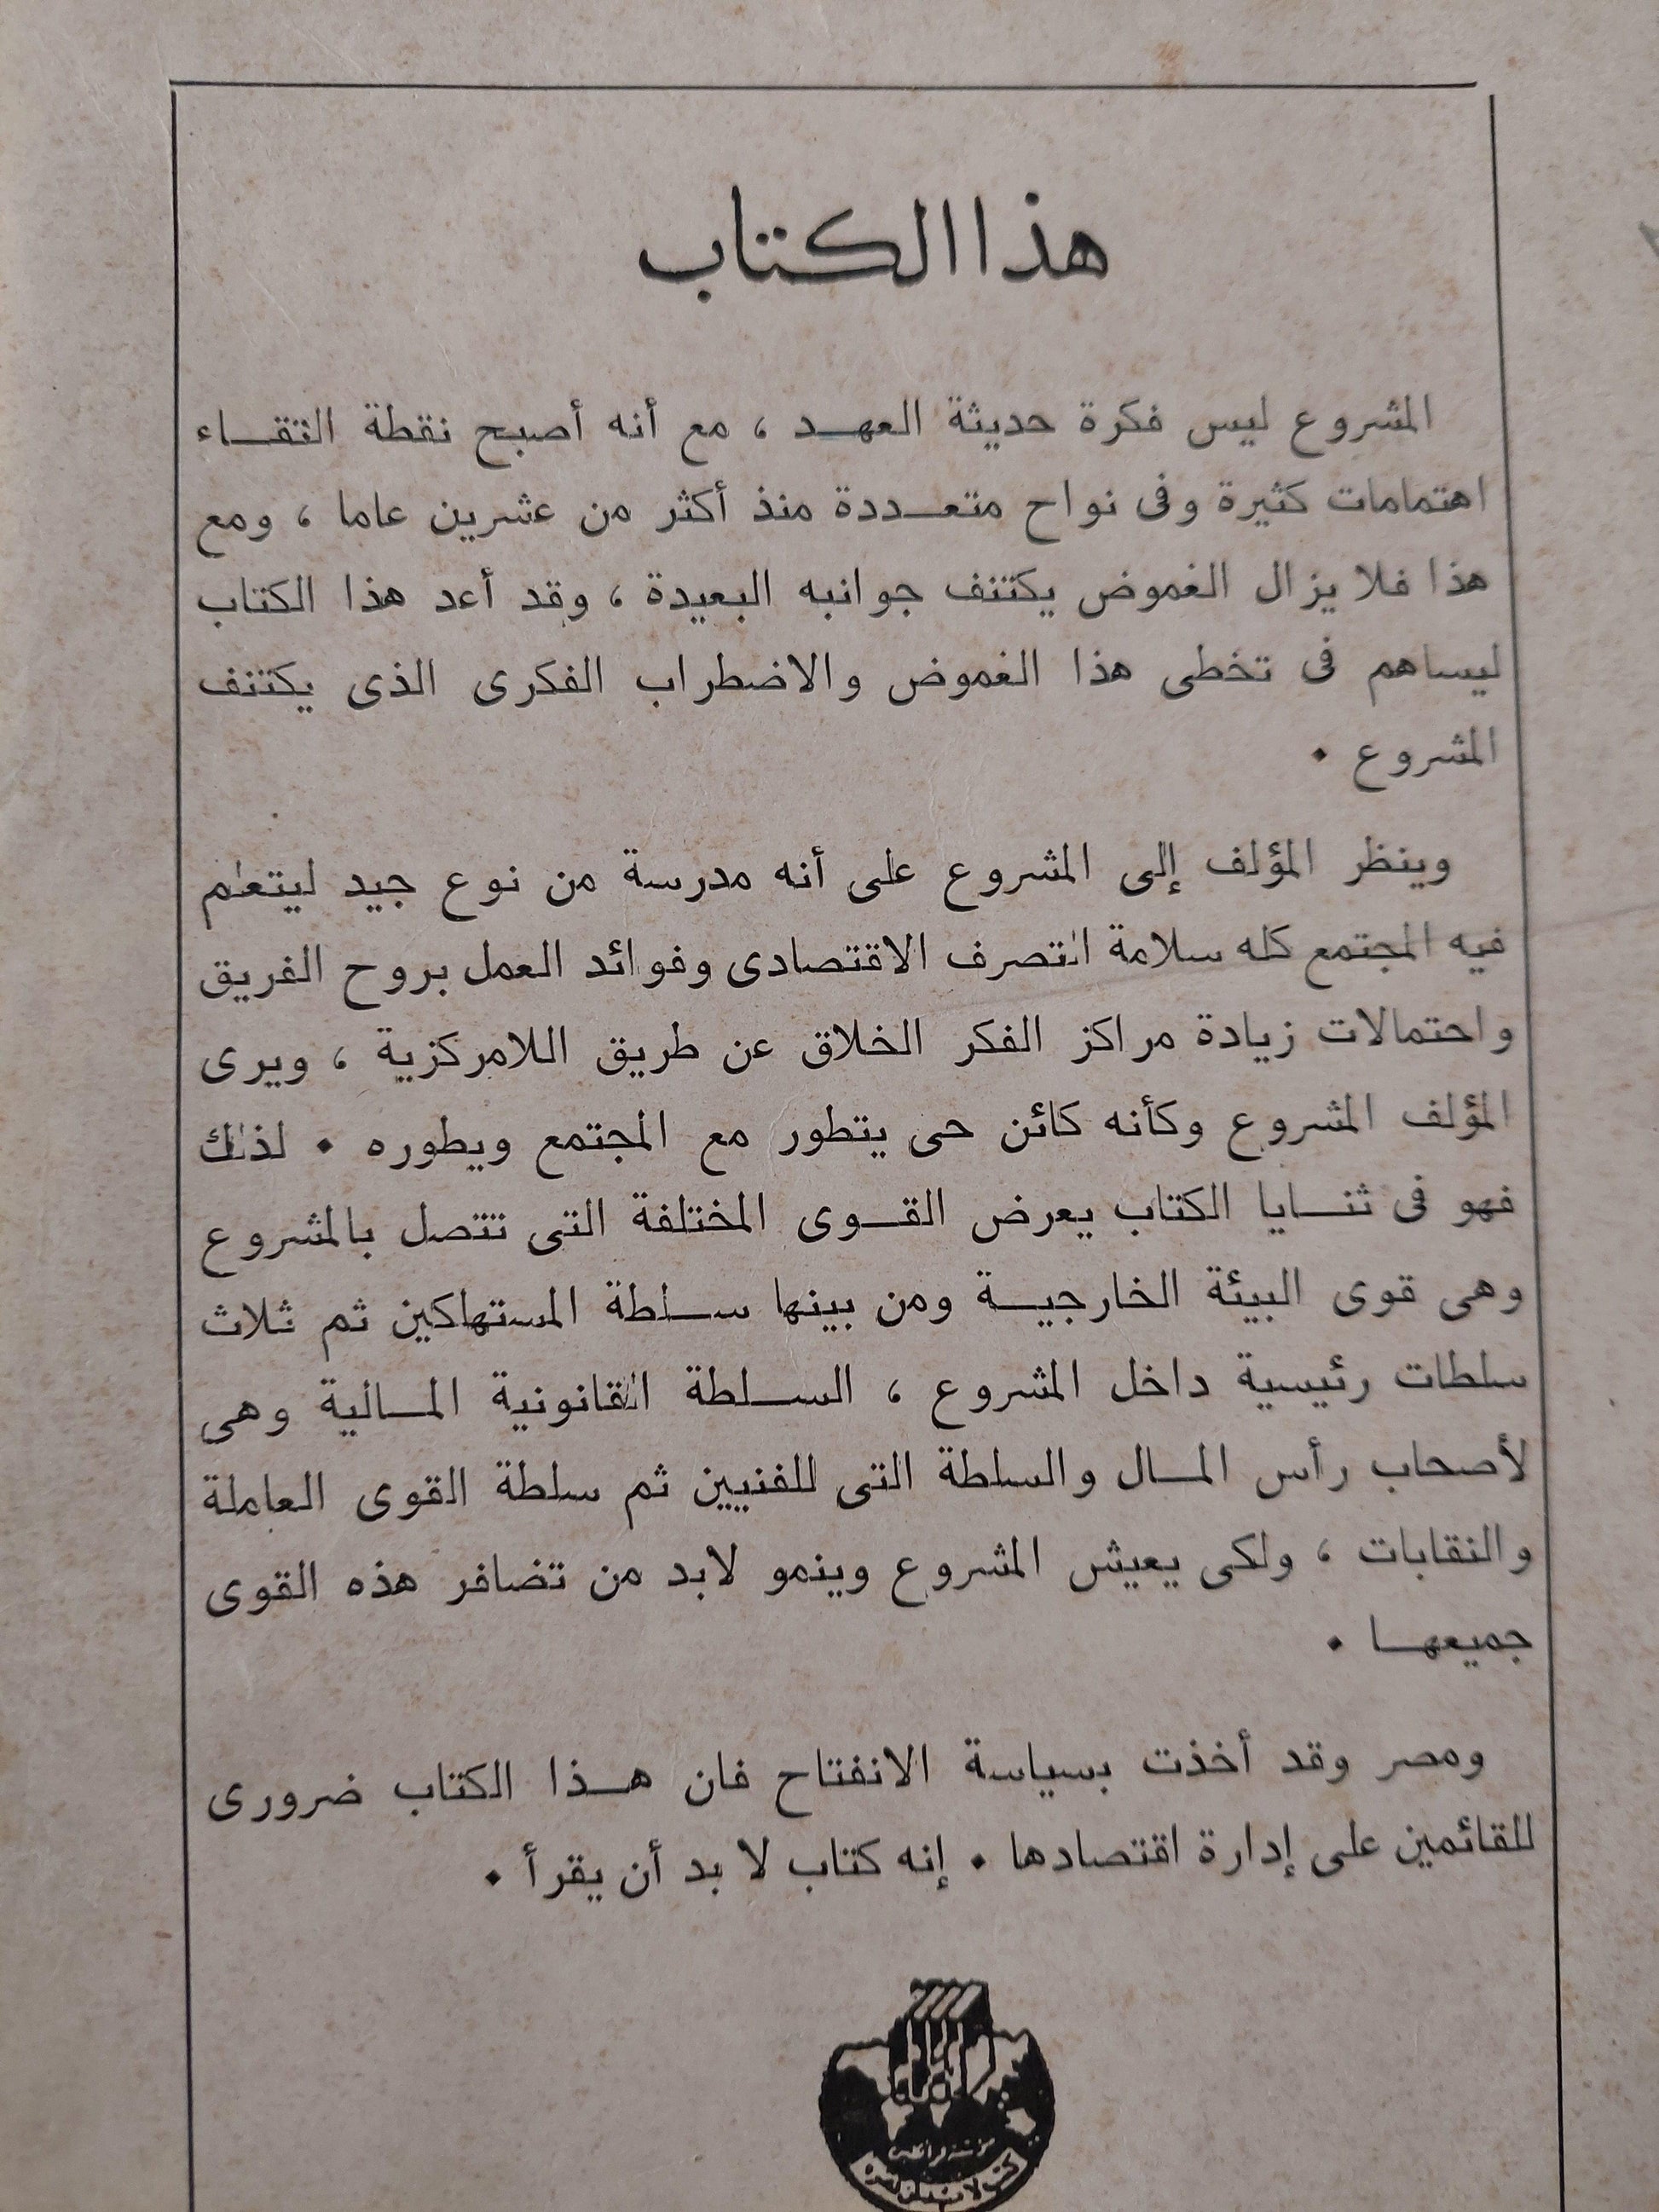 هذا الكتاب
المشروع ليس فكرة حديثة العهد ، مع أنه أصبح نقطة التقاء
اهتمامات كثيرة وفى نواح متعددة منذ أكثر من عشرين عاما ، ومع
هذا فلا يزال الغموض يكتنف جوانبه البعيدة ، وقد أعد هذا الكتاب
ليساهم فى تخطى هذا الغموض والاضطراب الفكرى الذى يكتنف
المشروع .
وينظر المؤلف إلى المشروع على أنه مدرسة من نوع جيد ليتعلم
فيه المجتمع كله سلامة التصرف الاقتصادى وفوائد العمل بروح الفريق
واحتمالات زيادة مراكز الفكر الخلاق عن طريق اللامركزية ، ويرى
المؤلف المشروع وكأنه كائن حى يتطور مع المجتمع ويطوره . لذلك
فهو فى ثنايا الكتاب يعرض القوى المختلفة التى تتصل بالمشروع
وهى قوى البيئة الخارجية ومن بينها سلطة المستهلكين ثم ثلاث
سلطات رئيسية داخل المشروع ، السلطة القانونية المالية وهى
لأصحاب رأس المال والسلطة التى للفنيين ثم سلطة القوى العاملة
والنقابات ، ولكى يعيش المشروع وينمو لابد من تضافر هذه القوى
جميعها .
ومصر وقد أخذت بسياسة الانفتاح فان هذا الكتاب ضرورى
للقائمين على إدارة اقتصادها . إنه كتاب لا بد أن يقرأ .